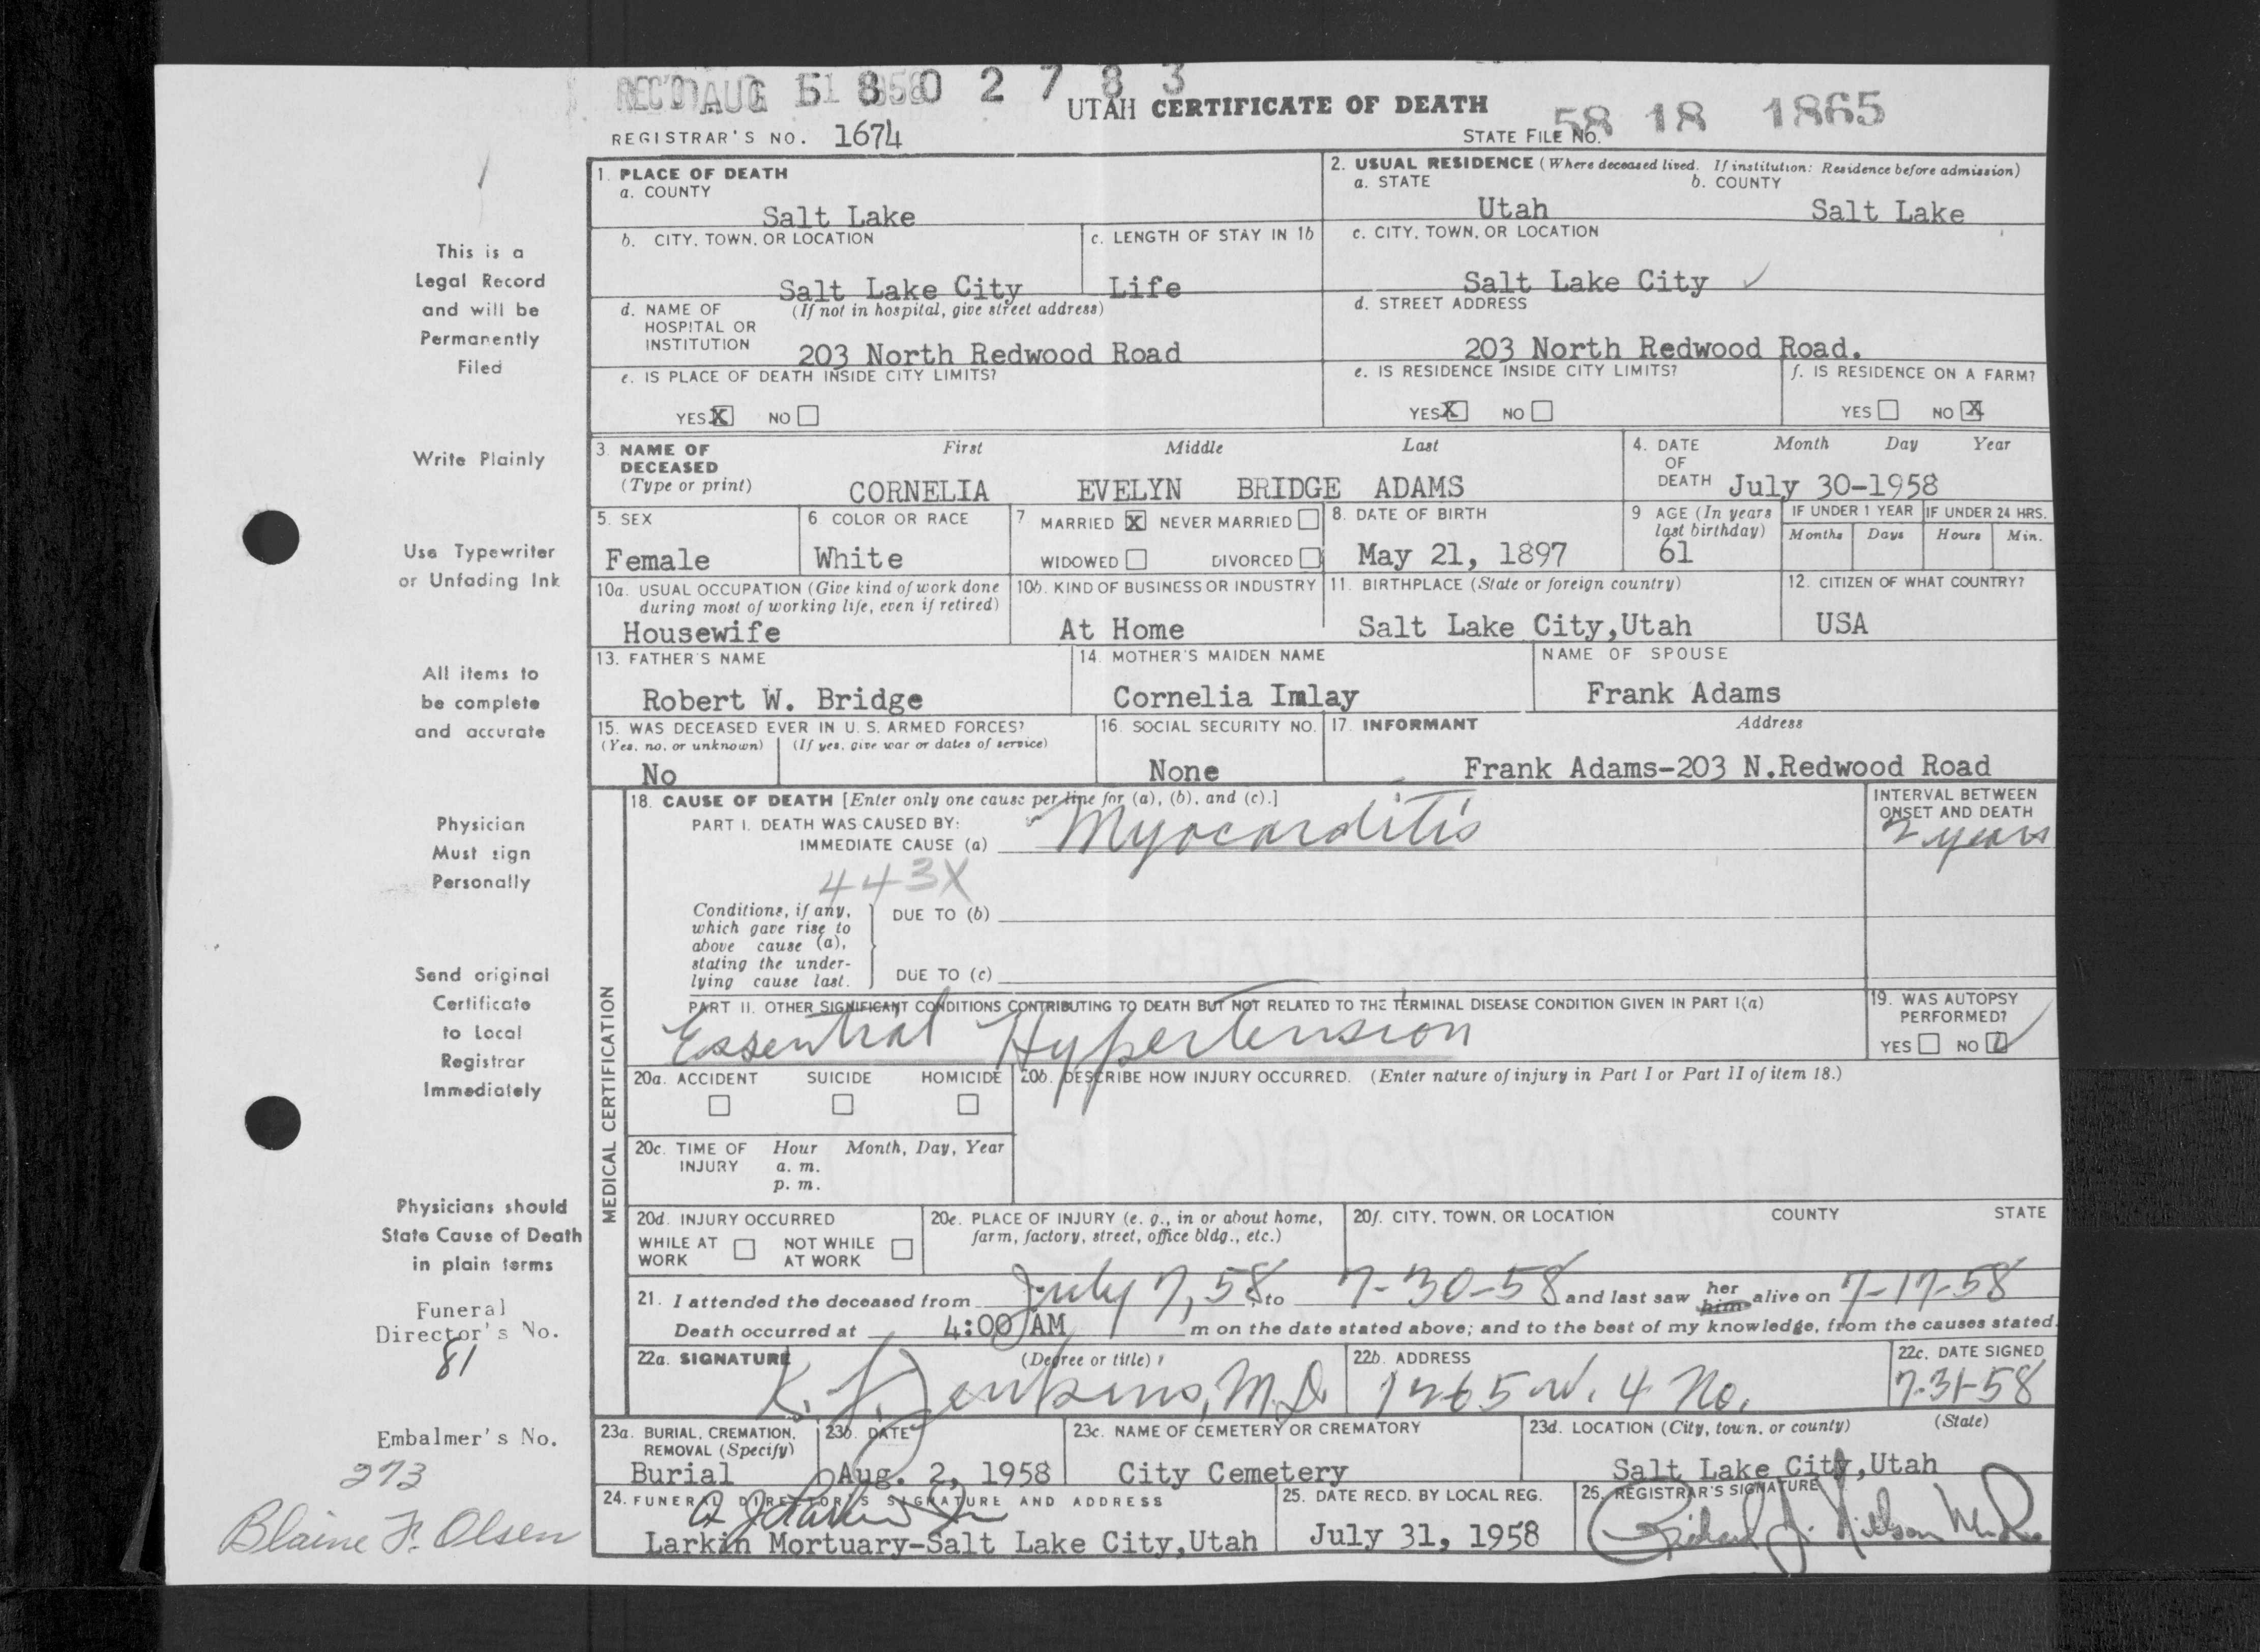 REC'D AUG 1 1958
5 8 0 2 7 8 3
UTAH CERTIFICATE OF DEATH
REGISTRAR'S NO. 1674
STATE FILE NO. 58 18 1865
1. PLACE OF DEATH
a. COUNTY
Salt Lake
2. USUAL RESIDENCE (Where deceased lived. If institution: Residence before admission)
a. STATE b. COUNTY
Utah Salt Lake
b. CITY, TOWN, OR LOCATION
Salt Lake City
c. LENGTH OF STAY IN 1b
Life
c. CITY, TOWN, OR LOCATION
Salt Lake City
d. NAME OF HOSPITAL OR INSTITUTION (If not in hospital, give street address)
203 North Redwood Road
d. STREET ADDRESS
203 North Redwood Road.
e. IS PLACE OF DEATH INSIDE CITY LIMITS?
YES X NO
e. IS RESIDENCE INSIDE CITY LIMITS?
YES X NO
f. IS RESIDENCE ON A FARM?
YES NO X
3. NAME OF DECEASED (Type or print)
First Middle Last
CORNELIA EVELYN BRIDGE ADAMS
4. DATE OF DEATH Month Day Year
July 30-1958
5. SEX
Female
6 COLOR OR RACE
White
7 MARRIED X NEVER MARRIED
WIDOWED DIVORCED
8. DATE OF BIRTH
May 21, 1897
9 AGE (In years last birthday)
61
IF UNDER 1 YEAR
Months Days
IF UNDER 24 HRS.
Hours Min.
10a. USUAL OCCUPATION (Give kind of work done during most of working life, even if retired)
Housewife
10b. KIND OF BUSINESS OR INDUSTRY
At Home
11. BIRTHPLACE (State or foreign country)
Salt Lake City,Utah
12. CITIZEN OF WHAT COUNTRY?
USA
13. FATHER'S NAME
Robert W. Bridge
14. MOTHER'S MAIDEN NAME
Cornelia Imlay
NAME OF SPOUSE
Frank Adams
15. WAS DECEASED EVER IN U. S. ARMED FORCES?
(Yes, no, or unknown) (If yes, give war or dates of service)
No
16. SOCIAL SECURITY NO.
None
17. INFORMANT Address
Frank Adams-203 N.Redwood Road
MEDICAL CERTIFICATION
18. CAUSE OF DEATH [Enter only one cause per line for (a), (b), and (c).]
PART I. DEATH WAS CAUSED BY:
IMMEDIATE CAUSE (a) Myocarditis
INTERVAL BETWEEN ONSET AND DEATH
2 years
443X
Conditions, if any, which gave rise to above cause (a), stating the underlying cause last.
DUE TO (b)
DUE TO (c)
PART II. OTHER SIGNIFICANT CONDITIONS CONTRIBUTING TO DEATH BUT NOT RELATED TO THE TERMINAL DISEASE CONDITION GIVEN IN PART I(a)
Essential Hypertension
19. WAS AUTOPSY PERFORMED?
YES NO
20a. ACCIDENT SUICIDE HOMICIDE
20b. DESCRIBE HOW INJURY OCCURRED. (Enter nature of injury in Part I or Part II of item 18.)
20c. TIME OF INJURY Hour Month, Day, Year
a. m.
p. m.
20d. INJURY OCCURRED
WHILE AT WORK NOT WHILE AT WORK
20e. PLACE OF INJURY (e. g., in or about home, farm, factory, street, office bldg., etc.)
20f. CITY, TOWN, OR LOCATION COUNTY STATE
21. I attended the deceased from July 7, 58, to 7-30-58 and last saw her him alive on 7-17-58
Death occurred at 4:00 AM m on the date stated above; and to the best of my knowledge, from the causes stated.
22a. SIGNATURE (Degree or title)
Jenkins, M.D
22b. ADDRESS
1265 W. 4 No.
22c. DATE SIGNED
7-31-58
23a. BURIAL, CREMATION, REMOVAL (Specify)
Burial
23b. DATE
Aug. 2, 1958
23c. NAME OF CEMETERY OR CREMATORY
City Cemetery
23d. LOCATION (City, town, or county) (State)
Salt Lake City,Utah
24. FUNERAL DIRECTOR'S SIGNATURE AND ADDRESS
Larkin Mortuary-Salt Lake City,Utah
25. DATE RECD. BY LOCAL REG.
July 31, 1958
26. REGISTRAR'S SIGNATURE
This is a
Legal Record
and will be
Permanently
Filed
Write Plainly
Use Typewriter
or Unfading Ink
All items to
be complete
and accurate
Physician
Must sign
Personally
Send original
Certificate
to Local
Registrar
Immediately
Physicians should
State Cause of Death
in plain terms
Funeral
Director's No.
81
Embalmer's No.
273
Blaine F. Olsen